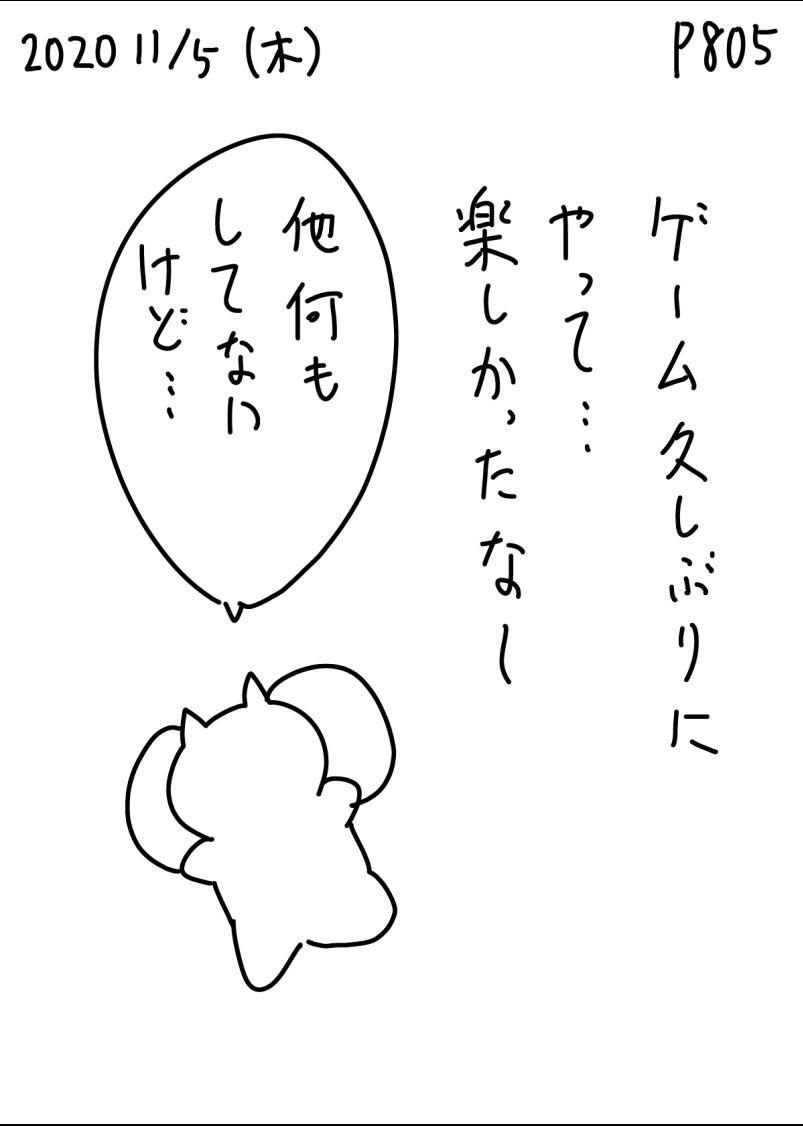 2020 11/5 (木)
P805
ゲーム久しぶりに
やって…
楽しかったなー
他何も
してない
けど…